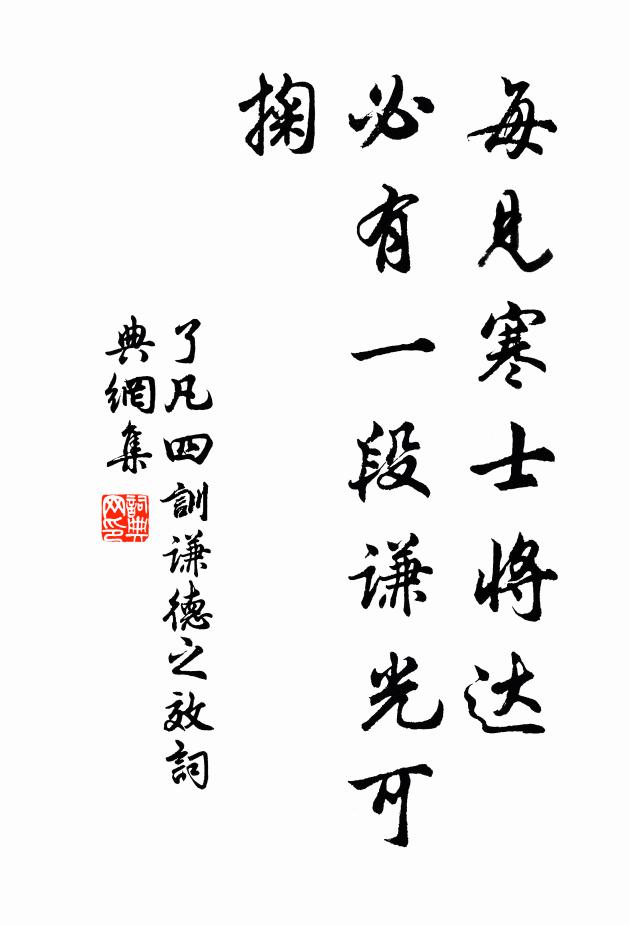 每见寒士将达
必有一段谦光可
掬
了凡四訓谦德之效詞
典網集
詞典
网印